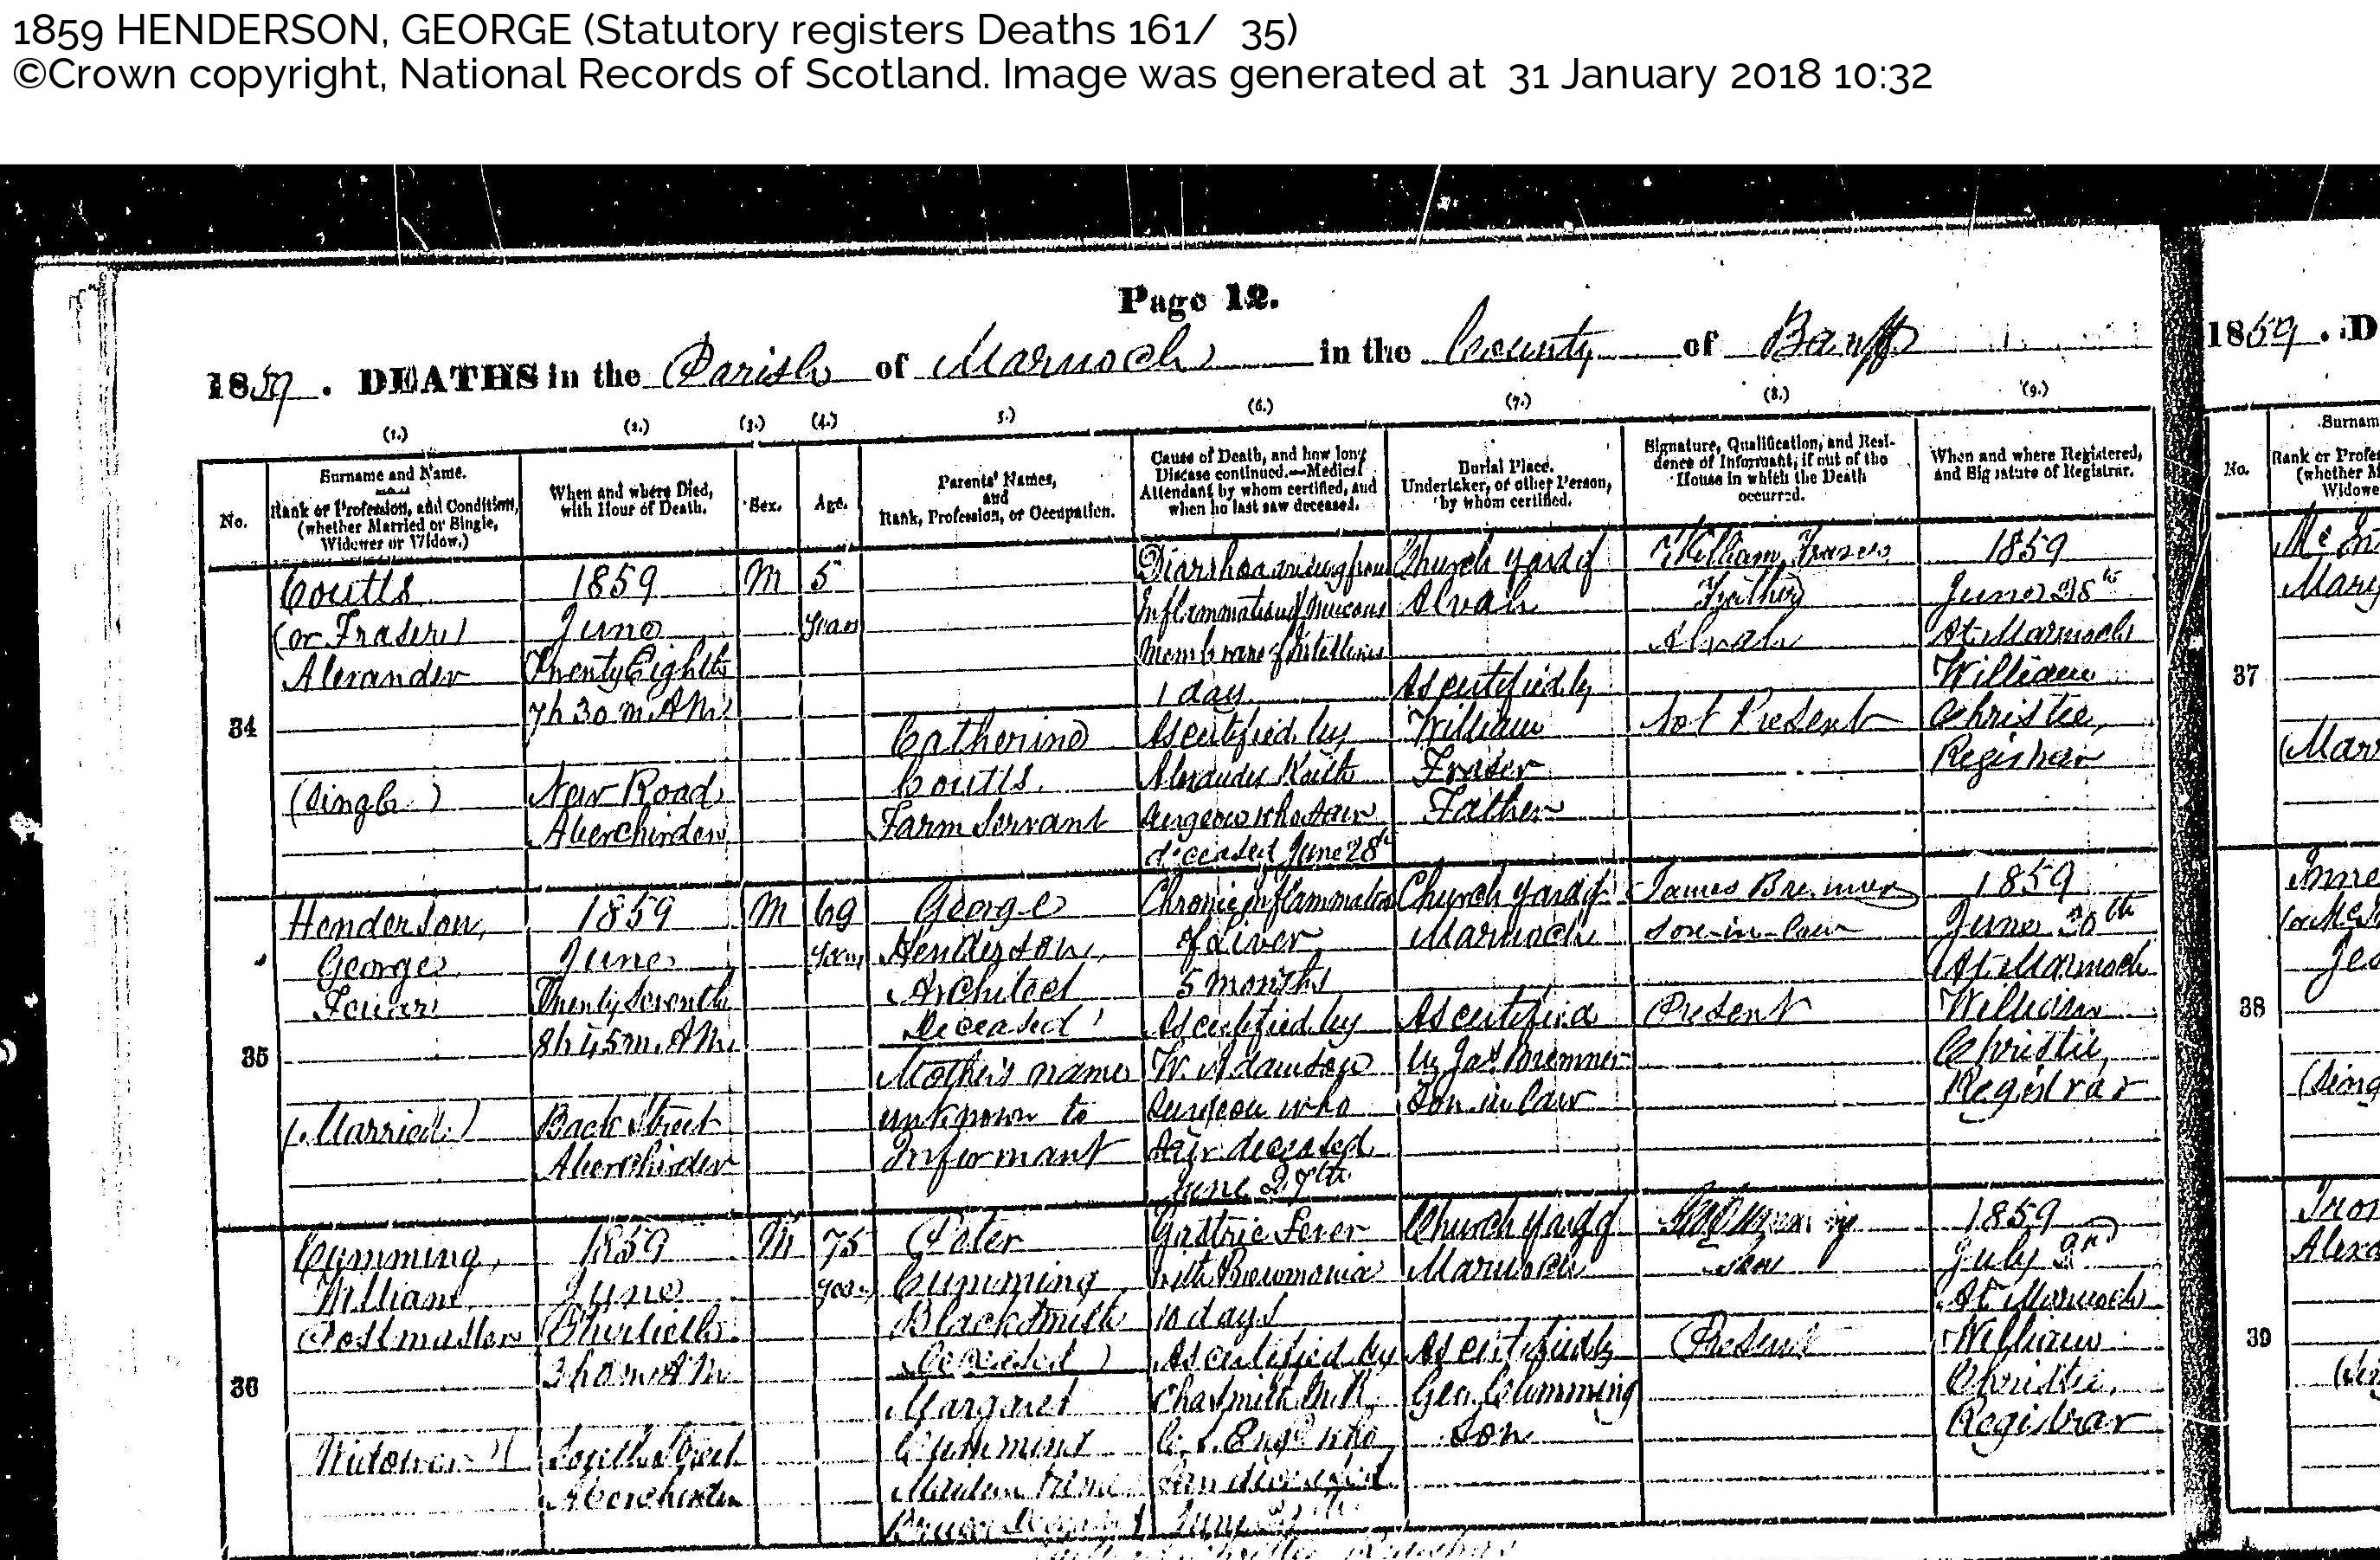 1859 HENDERSON, GEORGE (Statutory registers Deaths 161/ 35)
©Crown copyright, National Records of Scotland. Image was generated at 31 January 2018 10:32
Page 12.
1859. DEATHS in the Parish of Marnoch in the County of Banff
(1.) (2.) (3.) (4.) 5.) (6.) (7.) (8.) (9.)
No.
Surname and Name.
Rank or Profession, and Condition,
(whether Married or Single,
Widower or Widow.)
When and where Died,
with Hour of Death.
Sex.
Age.
Parents' Names,
and
Rank, Profession, or Occupation.
Cause of Death, and how long
Disease continued.—Medical
Attendant by whom certified, and
when he last saw deceased.
Burial Place.
Undertaker, or other Person,
by whom certified.
Signature, Qualification, and Resi-
dence of Informant, if out of the
House in which the Death
occurred.
When and where Registered,
and Signature of Registrar.
34
Coutts
(or Fraser)
Alexander
(Single)
1859
June
Twenty Eighth
7h 30m. A.M.
New Road
Aberchirder
M
5
Years
Catherine
Coutts
Farm Servant
Diarrhoea arising from
Inflammation of mucous
Membrane of Intestines
1 day
As certified by
Alexander Keith
Surgeon who saw
deceased June 28th
Church yard of
Alvah
As certified by
William
Fraser
Father
William Fraser
Father
Alvah
Not Present
1859
June 28th
At Marnoch
William
Christie,
Registrar
35
Henderson,
George
Feuar
(Married)
1859
June
Twenty Seventh
8h 45m. A.M.
Back Street
Aberchirder
M
69
Years
George
Henderson,
Architect
Deceased
Mother's name
unknown to
Informant
Chronic inflammation
of Liver
5 months
As certified by
W. Adamson
Surgeon who
saw deceased
June 27th
Church yard of
Marnoch
As certified
by Jas Bremner
Son in law
James Bremner
Son-in-law
Present
1859
June 30th
At Marnoch
William
Christie,
Registrar
36
Cumming,
William
Postmaster
Widower
1859
June
Thirtieth
3h 0m A.M.
South Street
Aberchirder
M
75
Years
Peter
Cumming
Blacksmith
Deceased
Margaret
Cumming
Maiden name
Gastric Fever
with Pneumonia
10 days
As certified by
who
Church yard of
Marnoch
As certified by
Geo. Cumming
Son
Son
Present
1859
July
At Marnoch
William
Christie,
Registrar
1859. D
Surnam
No.
Rank or Profes
(whether M
Widowe
37
Mary
(Marr
38
(Sing
39
Alexa